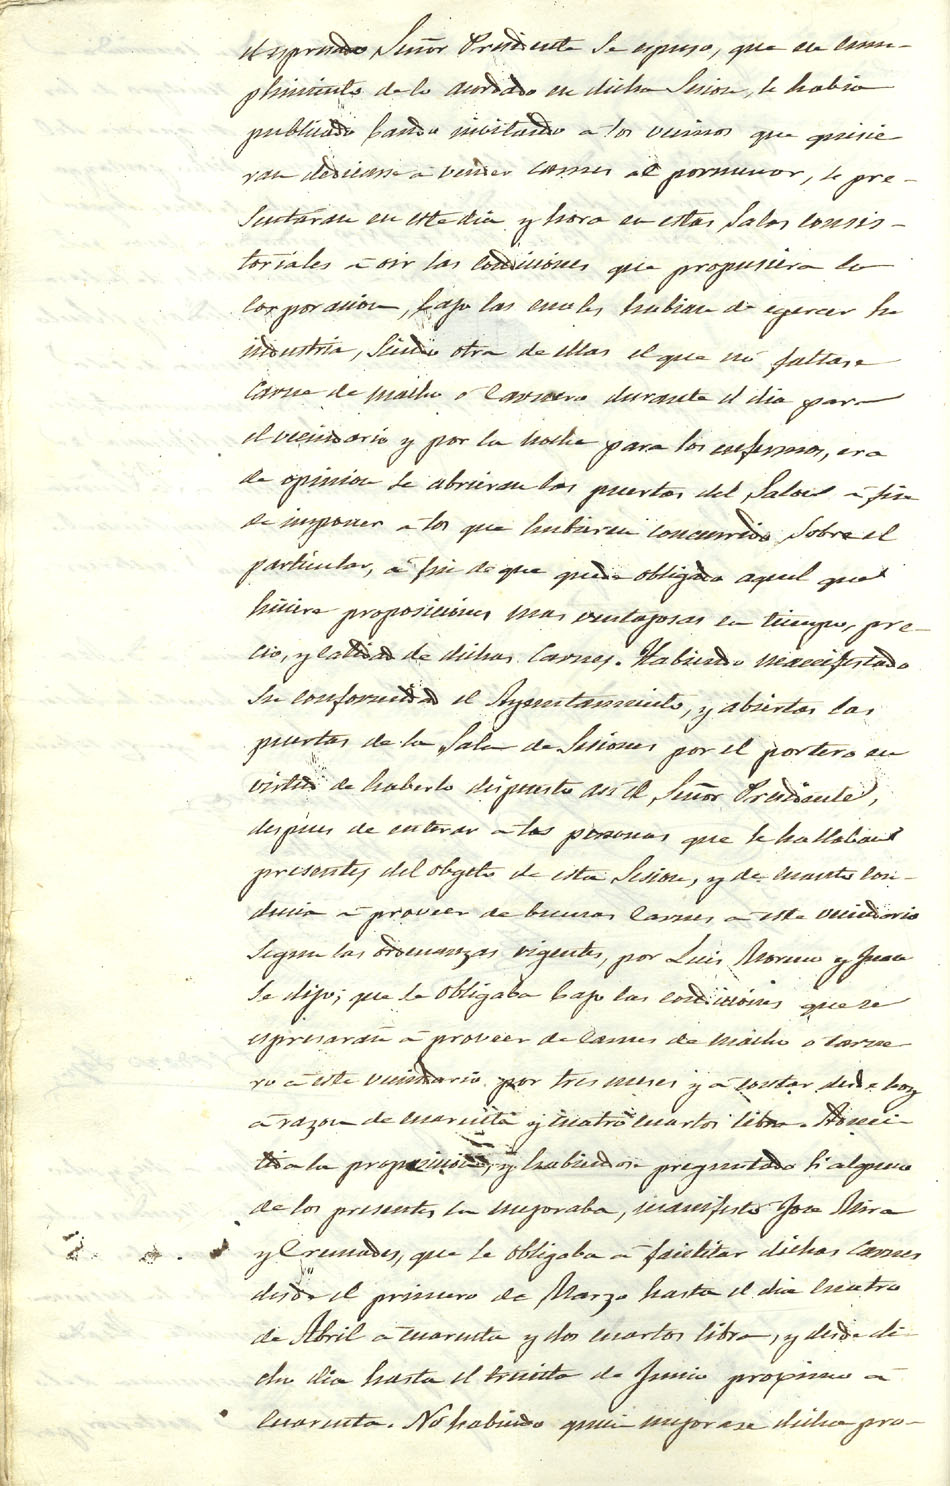 el espresado Señor Presidente se espuso, que en cum-
plimiento de lo acordado en dicha Sesion, se habia
publicado bando invitando a los vecinos que quisie-
ran dedicarse á vender carnes al pormenor, se pre-
sentáran en este dia y hora en estas Salas consis-
toriales á oir las condiciones que propusiera la
corporacion, bajo las cuales habian de egercer la
industria, siendo otra de ellas el que no faltase
carne de macho ó carnero durante el dia para
el vecindario y por la noche para los enfermos, era
de opinion se abrieran las puertas del Salon á fin
de imponer a los que hubieren concurrido sobre el
particular, á fin de que quede obligado aquel que
hiciere proposiciones mas ventajosas en tiempo, pre-
cio, y calidad de dichas carnes. Habiendo manifestado
su conformidad el Ayuntamiento, y abiertas las
puertas de la Sala de Sesiones por el portero en
virtud de haberlo dispuesto asi el Señor Presidente,
despues de enterar a las personas que se hallaban
presentes del obgeto de esta Sesion, y de cuanto con-
ducia á proveer de buenas carnes a este vecindario
segun las ordenanzas vigentes, por Luis Moreno y Juan
se dijo; que se obligaba bajo las condiciones que se
espresarán á proveer de carnes de macho o carne-
ro á este vecindario por tres meses y á contar desde hoy
á razon de cuarenta y cuatro cuartos libra. Admi-
tida la proposicion, y habiendose preguntado si alguno
de los presentes la mejoraba, manifestó Jose Mira
y Cremades, que se obligaba á facilitar dichas carnes
desde el primero de Marzo hasta el dia cuatro
de Abril á cuarenta y dos cuartos libra, y desde di-
cho dia hasta el treinta de Junio proximo á
cuarenta. No habiendo quien mejorase dicha pro-